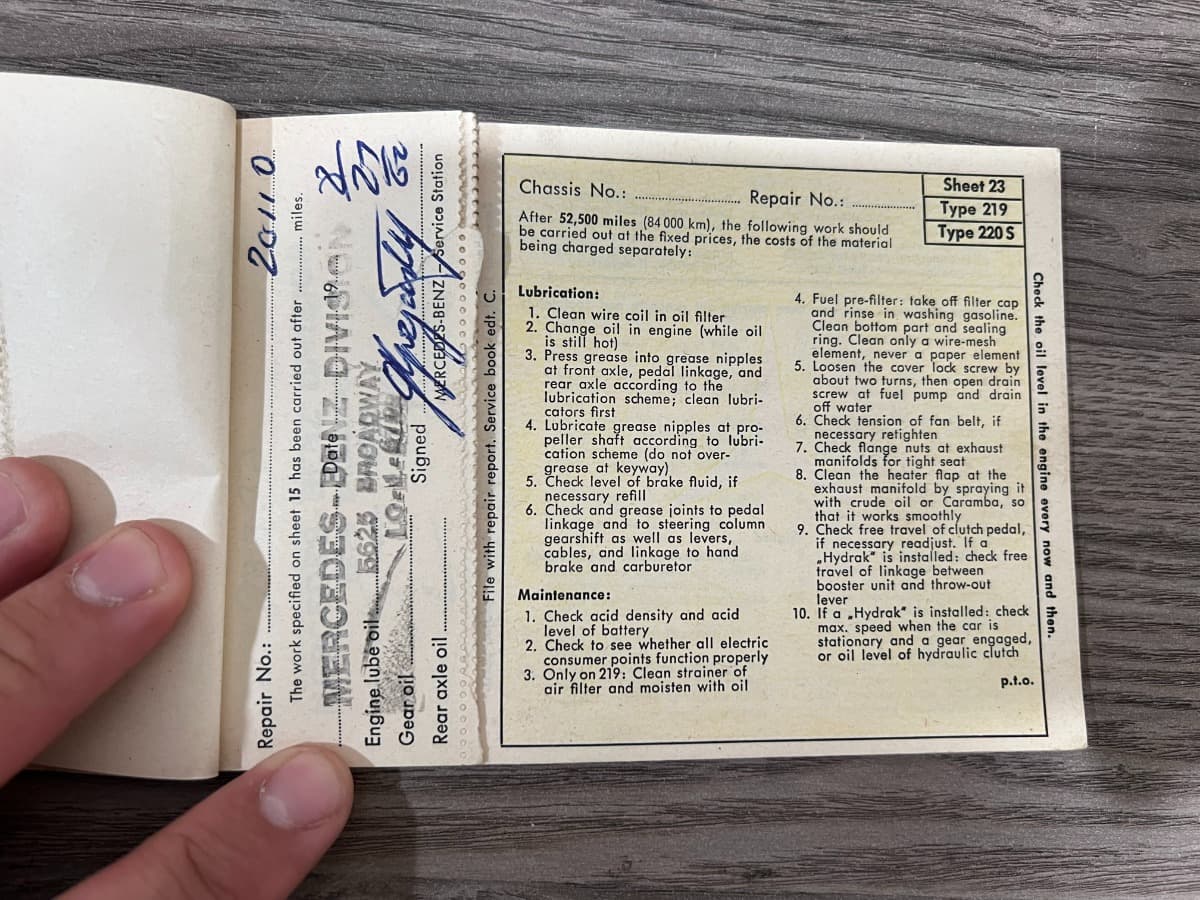 Repair No.: 20110
The work specified on sheet 15 has been carried out after miles.
MERCEDES-BENZ DIVISION
Date 19
5625 BROADWAY
Engine lube oil
Gear oil
Signed
Rear axle oil
MERCEDES-BENZ – Service Station
File with repair report. Service book edt. C.
Chassis No.: Repair No.:
Sheet 23
Type 219
Type 220 S
After 52,500 miles (84 000 km), the following work should
be carried out at the fixed prices, the costs of the material
being charged separately:
Lubrication:
1. Clean wire coil in oil filter
2. Change oil in engine (while oil
is still hot)
3. Press grease into grease nipples
at front axle, pedal linkage, and
rear axle according to the
lubrication scheme; clean lubri-
cators first
4. Lubricate grease nipples at pro-
peller shaft according to lubri-
cation scheme (do not over-
grease at keyway)
5. Check level of brake fluid, if
necessary refill
6. Check and grease joints to pedal
linkage and to steering column
gearshift as well as levers,
cables, and linkage to hand
brake and carburetor
Maintenance:
1. Check acid density and acid
level of battery
2. Check to see whether all electric
consumer points function properly
3. Only on 219: Clean strainer of
air filter and moisten with oil
4. Fuel pre-filter: take off filter cap
and rinse in washing gasoline.
Clean bottom part and sealing
ring. Clean only a wire-mesh
element, never a paper element
5. Loosen the cover lock screw by
about two turns, then open drain
screw at fuel pump and drain
off water
6. Check tension of fan belt, if
necessary retighten
7. Check flange nuts at exhaust
manifolds for tight seat
8. Clean the heater flap at the
exhaust manifold by spraying it
with crude oil or Caramba, so
that it works smoothly
9. Check free travel of clutch pedal,
if necessary readjust. If a
„Hydrak" is installed: check free
travel of linkage between
booster unit and throw-out
lever
10. If a „Hydrak" is installed: check
max. speed when the car is
stationary and a gear engaged,
or oil level of hydraulic clutch
p.t.o.
Check the oil level in the engine every now and then.